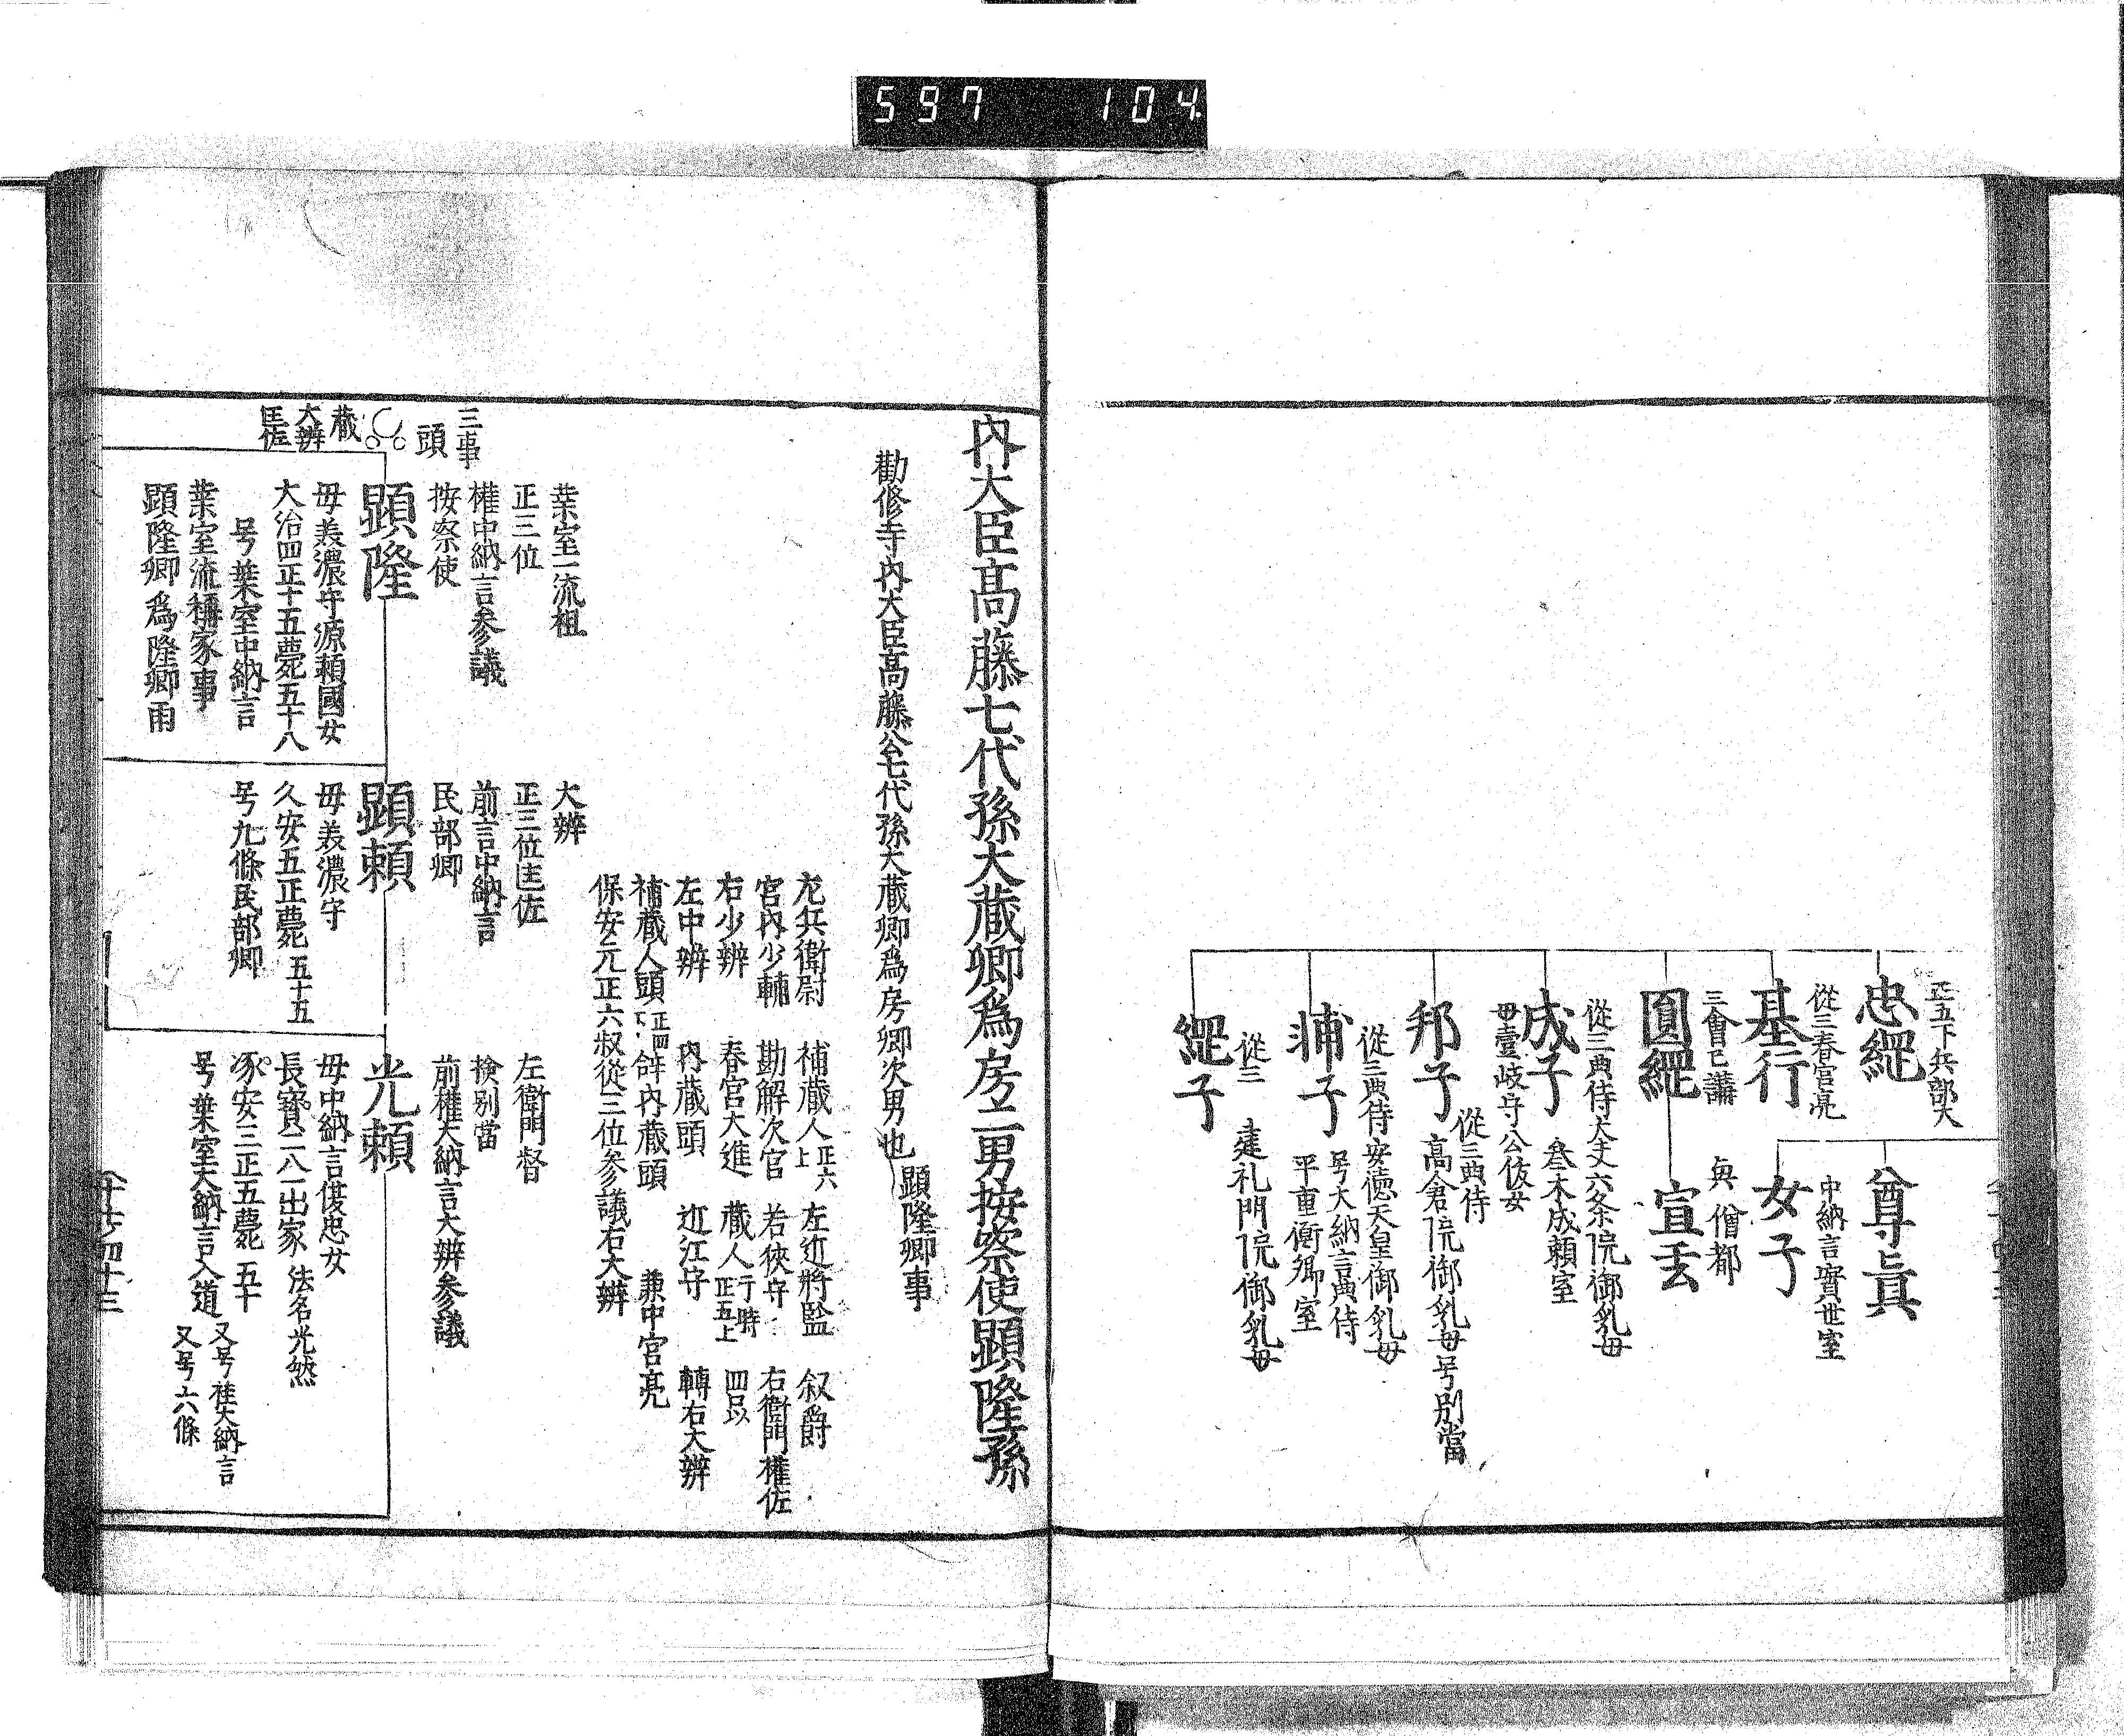 597 104
正五下兵部大
忠綱
尊眞
從三春宮亮
基行
中納言實世室
女子
三會已講
圓綱
興僧都
宣玄
從三典侍大夫六条院御乳母
成子
叅木成頼室
母壹岐守公俊女
邦子
從三典侍
高倉院御乳母号別當
從三典侍安徳天皇御乳母
号大納言典侍
輔子
平重衡卿室
從三
建礼門院御乳母
綱子
內大臣高藤七代孫大藏卿爲房二男按察使顯隆孫
勸修寺內大臣高藤公七代孫大藏卿爲房卿次男也
顯隆卿事
左兵衞尉 補藏人正六上 左近將監 叙爵
宮內少輔 勘解次官 若狹守 右衞門權佐
右少辨 春宮大進 藏人 正五上 四品以
左中辨 內藏頭 近江守 轉右大辨
補藏人頭 辞內藏頭 兼中宮亮
保安元正六叙從三位参議右大辨
三事
頭
藏
大辨
匡佐
葉室一流祖
正三位
權中納言参議
按察使
顯隆
母美濃守源頼國女
大治四正十五薨五十八
号葉室中納言
葉室流稱家事
顯隆卿爲隆卿兩
大辨
正三位匡佐
前言中納言
民部卿
顯頼
母美濃守
久安五正薨五十五
号九條民部卿
左衞門督
撿別當
前權大納言大辨参議
光頼
母中納言俊忠女
長寛二八一出家 法名光然
承安三正五薨五十
号葉室大納言入道
又号桂大納言
又号六條
十七ノ四十三